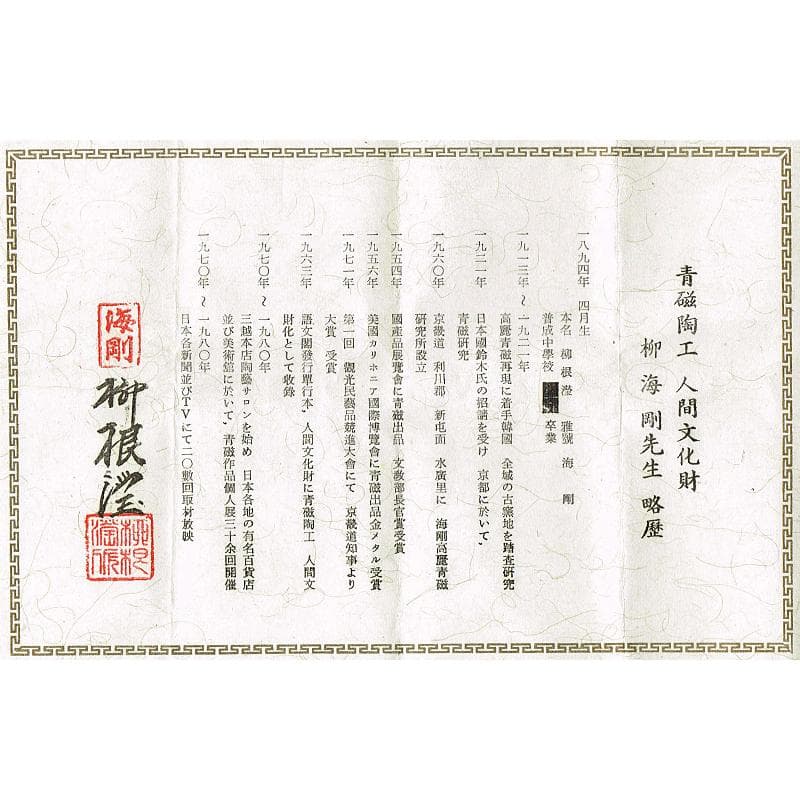 青磁陶工 人間文化財
柳海剛先生 略歴
一八九四年 四月生
本名 柳根瀅 雅號 海剛
普成中學校 卒業
一九一三年〜一九二一年
高麗青磁再現に着手韓國 全域の古窯地を踏査研究
一九二一年
日本國鈴木氏の招請を受け 京都に於いて、
青磁研究
一九六〇年
京畿道 利川郡 新屯面 水廣里に 海剛高麗青磁
研究所設立
一九五四年
國産品展覽會に青磁出品 文教部長官賞受賞
一九五六年
美國カリホニア國際博覽會に青磁出品金メタル受賞
一九七一年
第一回 觀光民藝品競進大會にて 京畿道知事より
大賞 受賞
一九六三年
語文閣發行單行本、人間文化財に青磁陶工 人間文
財化として收錄
一九七〇年〜一九八〇年
三越本店陶藝サロンを始め 日本各地の有名百貨店
並び美術館に於いて、青磁作品個人展三十余回開催
一九七〇年〜一九八〇年
日本各新聞並びTVにて二〇數回取材放映
海剛
柳根瀅
柳根瀅印